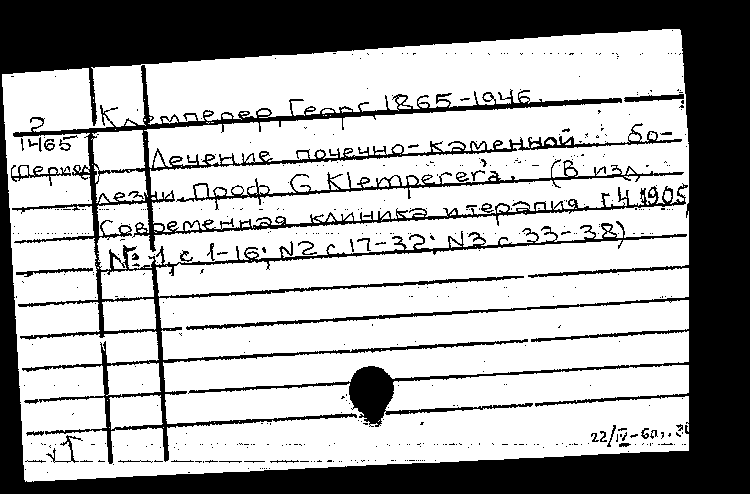 Клемперер, Георг, 1865-1946.
2
1465
(Период)
Лечение почечно-каменной бо-
лезни. Проф. G. Klemperer'a. (В изд.
Современная клиника и терапия. г. 4. 1905
№ 1, с. 1-16; N2 с. 17-32; N3 с. 33-38)
22/IV-60